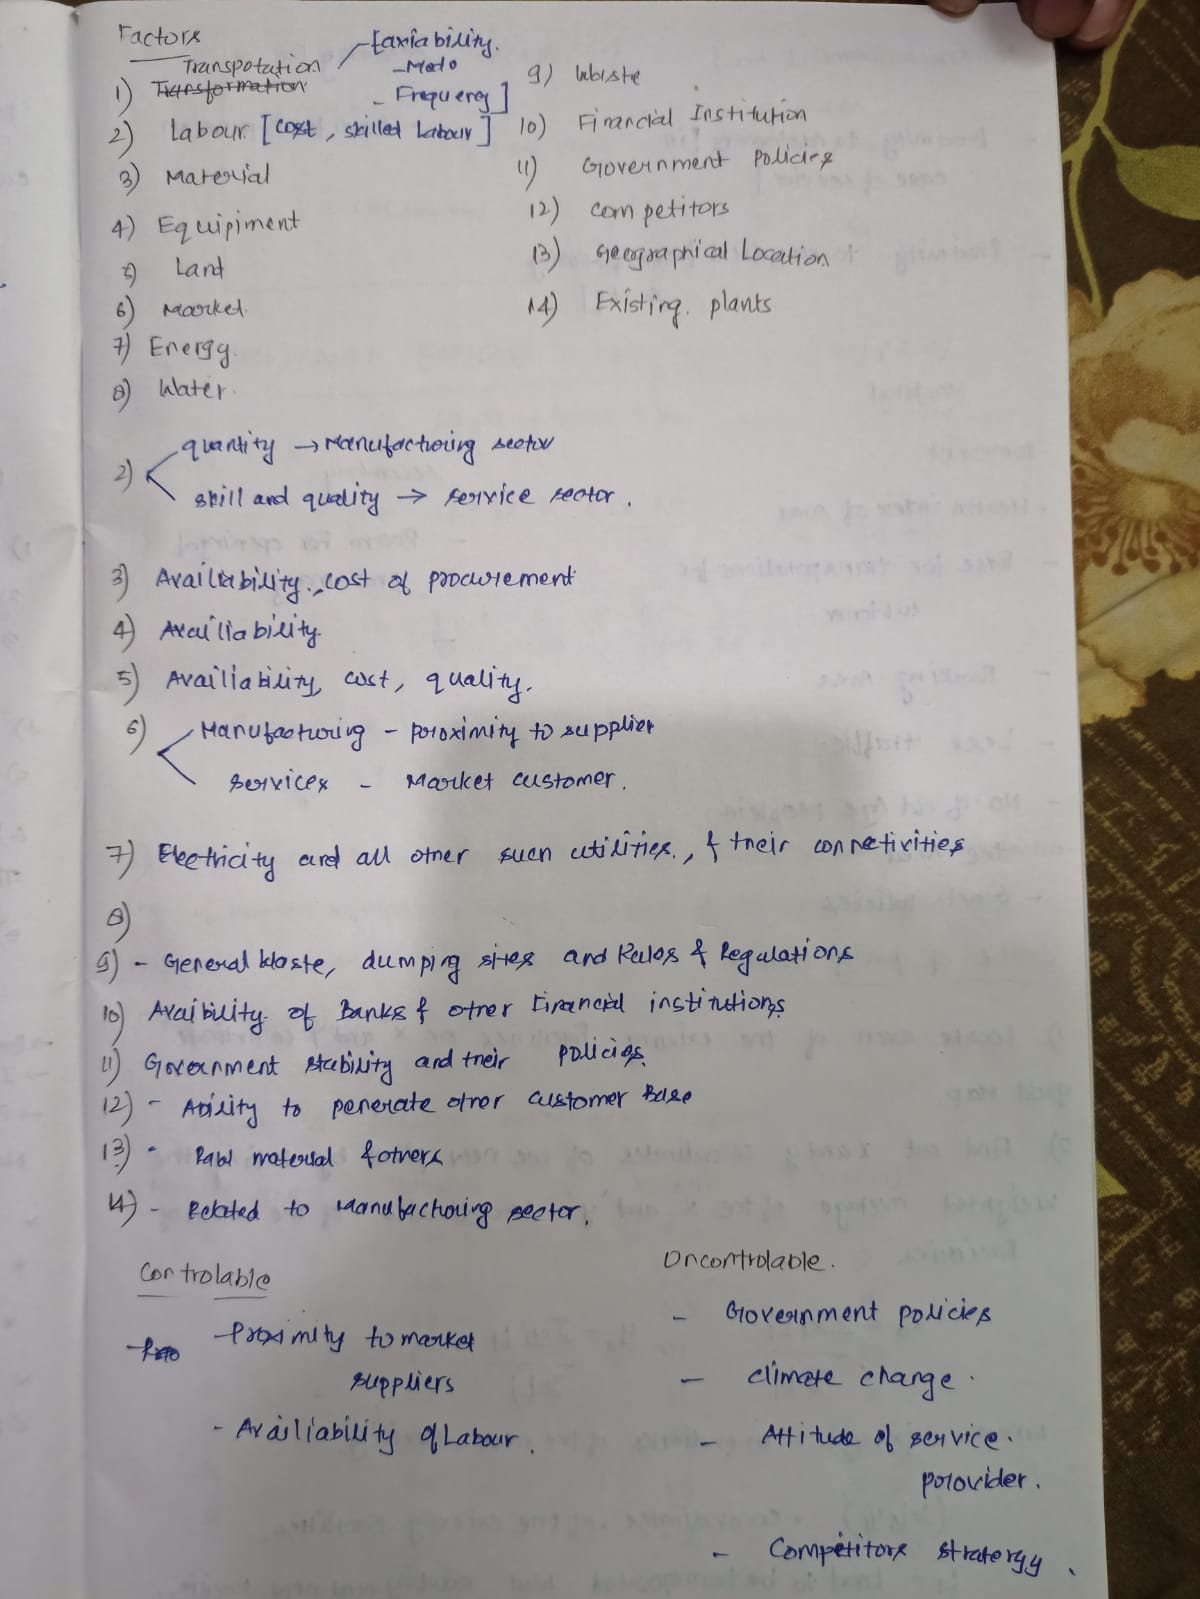 Factors
Transpotation - [axiability.
1) Transformation - Mode
- Frequency]
2) Labour [cost, skilled Labour]
3) Material
4) Equipiment
5) Land
6) Market.
7) Energy.
8) Water.
9) Waste
10) Financial Institution
11) Government Policies
12) competitors
13) Geographical Location
14) Existing plants
2) quantity → Manufacturing sector
skill and quality → service sector.
3) Availiability, cost of procurement
4) Availiability.
5) Availiability, cost, quality.
6) Manufacturing - proximity to supplier
Services - Market customer.
7) Electricity and all other such utilities., & their connectivities
8)
9) - General Waste, dumping sites and Rules & Regulations
10) Avaibility of Banks & other Financial institutions
11) Government stability and their policies.
12) - Ability to penerate other customer Base
13) - Raw material & others
14) - Related to Manufacturing sector.
Controlable
- Proximity to market
suppliers
- Availiability of Labour.
Uncontrolable.
- Government policies
- climate change.
- Attitude of service.
provider.
- Competitors stratergy.